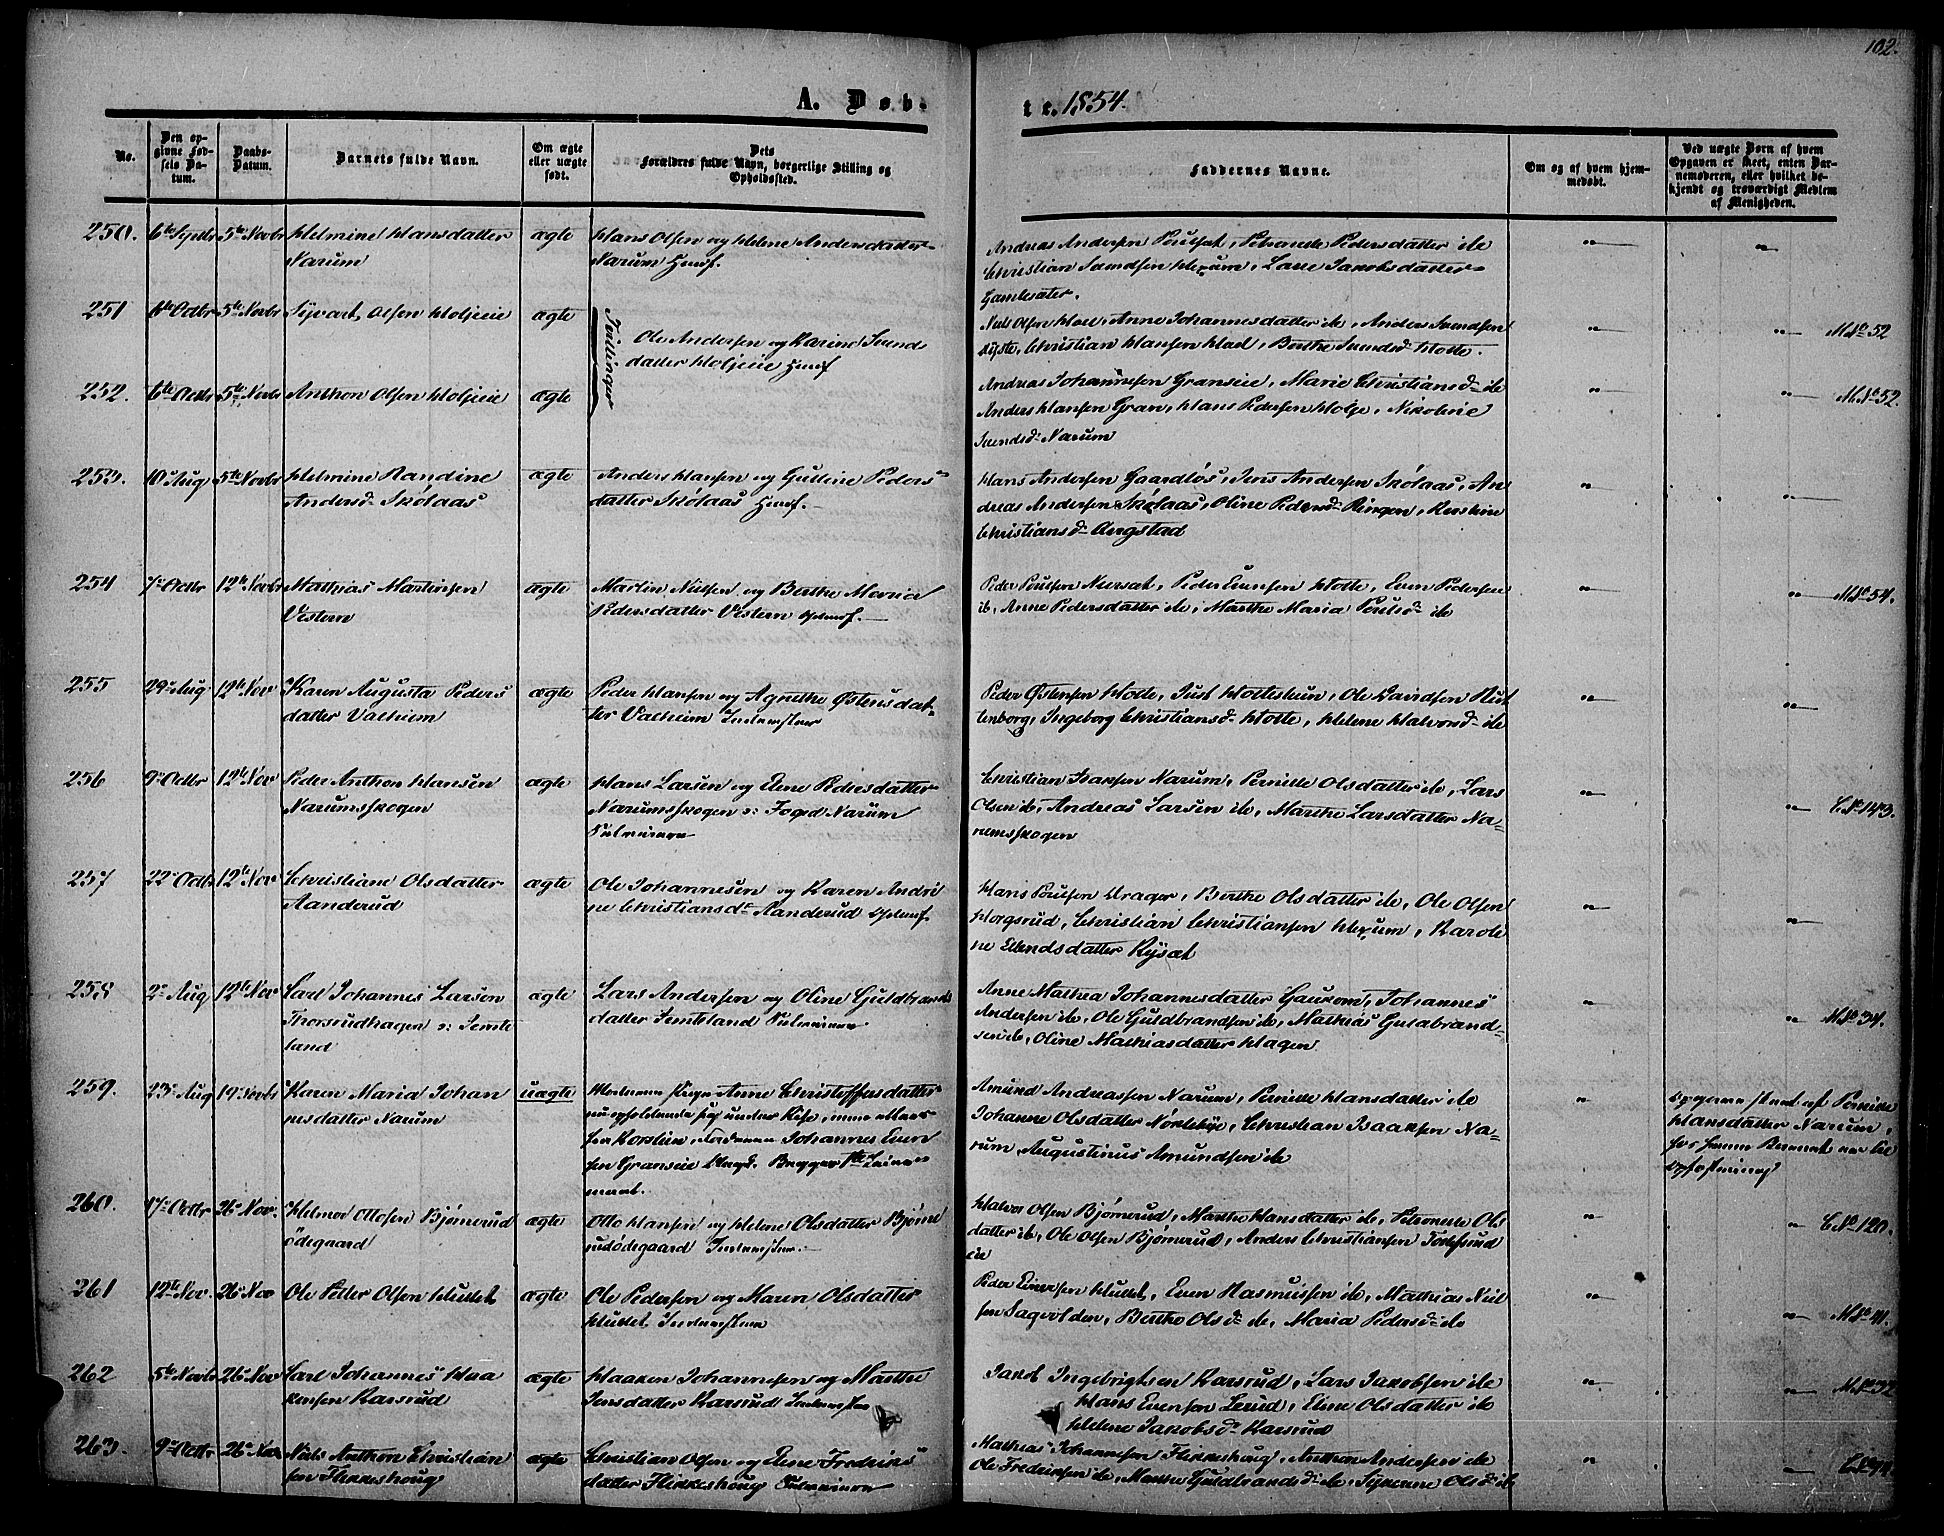 102.
A. Døb-
te. 1854.
No.
Den op-
givne Fød-
sels Da-
tum.
Daabs-
Datum.
Barnets fulde Navn.
Om ægte
eller uægte
født.
Dets
Forældres fulde Navn, borgerlige Stilling og
Opholdssted.
Faddernes Navne.
Om og af hvem hjem-
medøbt.
Ved uægte Børn af hvem
Opgaven er skeet, enten Bar-
nemoderen, eller hvilket be-
kjendt og troværdigt Medlem
af Menigheden.
250. 6te Septbr 5te Novbr Helmine Hansdatter ægte Hans Olsen og Helene Andersdatter
Narum Narum Huusf.
Andreas Andersen Poulsæt, Petronelle Pedersdatter ib
Christian Svendsen Hexum, Lasse Jakobsdatter
Gamlesæter.
251 6te Octbr 5te Novbr Syvart Olsen Holjeie ægte Tvillinger
Ole Andersen og Karine Svends
datter Holjeie Huusf
Niels Olsen Hoel, Anne Johannesdatter ib, Anders Svendsen
Christian Hansen Hoel, Berthe Svendsd. Hotte. M.No 52
252. 6te Octbr 5te Novbr Anthon Olsen Holjeie ægte
Andreas Johannesen Granseie, Marie Christiansd. ib
Anders Hansen Gran, Hans Pedersen Holje, Nikoline
Svendsd. Narum M.No 52.
253. 10 Aug 5te Novbr Helmine Randine ægte Anders Hansen og Gulline Peders
Andersd. Skölaas datter Skölaas Huusf.
Hans Andersen Gaardløs, Jens Andersen Skölaas, An
dreas Andersen Skölaas, Oline Pedersd. Ringen, Kerstine
Christiansd. Augstad
254 7. Octbr 12te Novbr Mathias Martinsen ægte Martin Nielsen og Berthe Maria
Vestern Pedersdatter Vestern
Peder Poulsen Nersæt, Peder Evensen Hotte, Even Pedersen
ib, Anne Pedersdatter ib, Marthe Maria Poulsd. ib M.No 54.
255 29. Aug 12te Nov Karen Augusta Peders ægte Peder Hansen og Agnethe Østensdat-
datter Valheim ter Valheim Inderster
Peder Østensen Hotte, Just Hottestuen, Ole Davidsen Rut
tenborg, Ingeborg Christiansd. Hotte, Helene Halvorsd. ib
256 9. Octbr 12te Nov Peder Anthon Hansen ægte Hans Larsen og Elene Pedersdatter
Narumsskogen Narumsskogen o: Foged Narum
Christian Isaksen Narum, Pernille Olsdatter ib, Lars
Olsen ib, Andreas Larsen ib, Marthe Larsdatter Na-
rumsskogen C.No 143.
257 22. Octbr 12te Nov Christiane Olsdatter ægte Ole Johannesen og Karen Andri
Aanderud ne Christiansd. Aanderud
Hans Poulsen Krager, Berthe Olsdatter ib, Ole Olsen
Horgsrud, Christian Christiansen Hexum, Karole
ne Erlendsdatter Rysæt
258 2. Aug 12te Nov Carl Johannes Larsen ægte Lars Andersen og Oline Guldbrands
Thorsrudhagen o: Semte datter Semteland
land
Anne Mathea Johannesdatter Gaukom, Johannes
Andersen ib, Ole Guldbrandsen ib, Mathias Guldbrand
sen ib, Oline Mathiasdatter Hagen M.No 34.
259. 23. Aug 19. Novbr Karen Maria Johan uægte Moderen Pige Anne Christoffersdatter
nesdatter Narum
Johannes Even
sen Granseie
Amund Andreassen Narum, Pernille Hansdatter ib
Johanne Olsdatter Nørlebye, Christian Isaaksen Na-
rum, Augustinus Amundsen ib
Opgaven skeet af Pernille
Hansdatter Narum,
hos hvem Barnet er til
opfostring
260. 17. Octbr 26. Nov. Helmer Ottosen Bjørnerud ægte Otto Hansen og Helene Olsdatter Bjørne
ödegaard rudödegaard Inderster
Halvor Olsen Bjørnerud, Marthe Hansdatter ib, Petronelle Ols
datter ib, Ole Olsen Bjørnerud, Anders Christiansen
ib C.No 120.
261 12te Nov. 26. Nov Ole Petter Olsen Hullet ægte Ole Pedersen og Maren Olsdatter
Hullet Inderster
Peder Evensen Hullet, Even Rasmussen ib, Mathias Niel
sen Sagvolden, Berthe Olsd. ib, Maria Pedersd. ib M.No 41.
262 5te Novbr 26. Nov Carl Johannes Haa ægte Haaken Johannesen og Marthe
kensen Karsrud Jensdatter Karsrud Inderster
Jakob Ingebrigtsen Karsrud, Lars Jakobsen ib
Hans Evensen Lerud, Eline Olsdatter ib
Helene Jakobsd. Karsrud M.No 32
263. 9. Octbr 26. Nov Niels Anthon Christian ægte Christian Olsen og Elene Fredriks
sen Flikkeshoug datter Flikkeshoug
Mathias Johannesen Flikkeshoug, Anthon Andersen ib
Ole Fredriksen ib, Marthe Guldbrandsd. ib, Olsd. ib